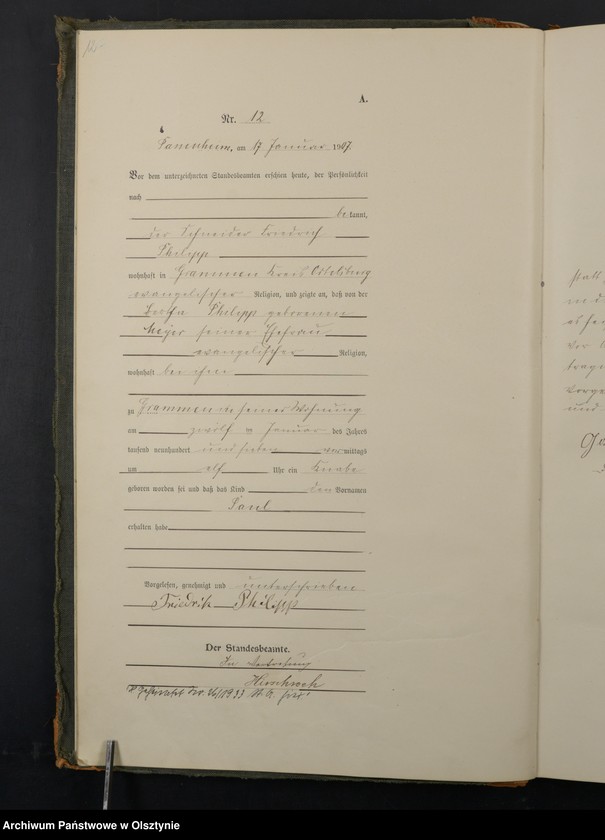 12
A.
Nr. 12
am 17 Januar 1907
Vor dem unterzeichneten Standesbeamten erschien heute, der Persönlichkeit
nach
bekannt,
der Schneider Friedrich
Philipp
wohnhaft in Grammen Kreis Ortelsburg
evangelischer Religion, und zeigte an, daß von der
Philipp geborenen
Meyer seiner Ehefrau
evangelischer Religion,
wohnhaft bei ihm
zu Grammen in seiner Wohnung
am zwölf ten Januar des Jahres
tausend neunhundert und sieben vormittags
um elf Uhr ein Knabe
geboren worden sei und daß das Kind den Vornamen
Paul
erhalten habe
Vorgelesen, genehmigt und unterschrieben
Friedrich Philipp
Der Standesbeamte.
In Vertretung
1933
Archiwum Państwowe w Olsztynie